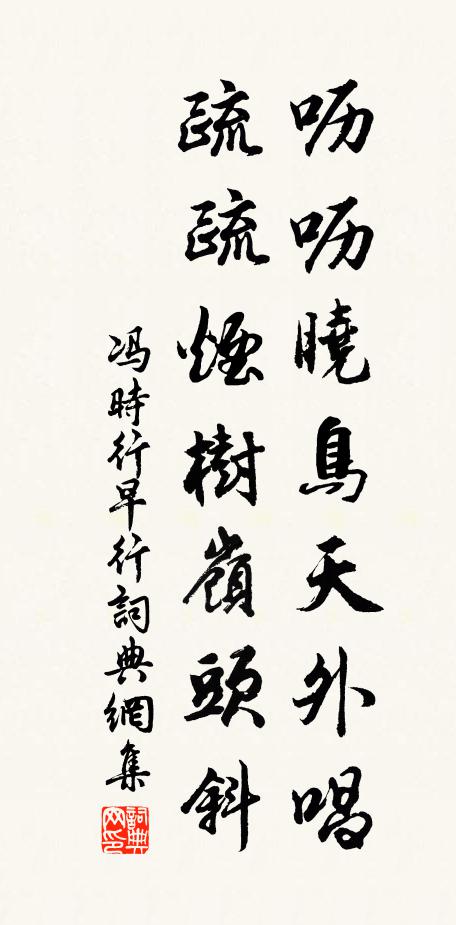 呖呖曉鳥天外唱
疏疏煙樹嶺頭斜
冯時行早行詞典網集
詞典
网印